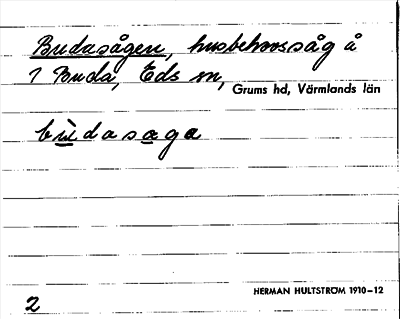 Budasågen, husbehovssåg å
1 Buda, Eds sn,
Grums hd, Värmlands län
bùdasaga
HERMAN HULTSTRÖM 1910–12
2